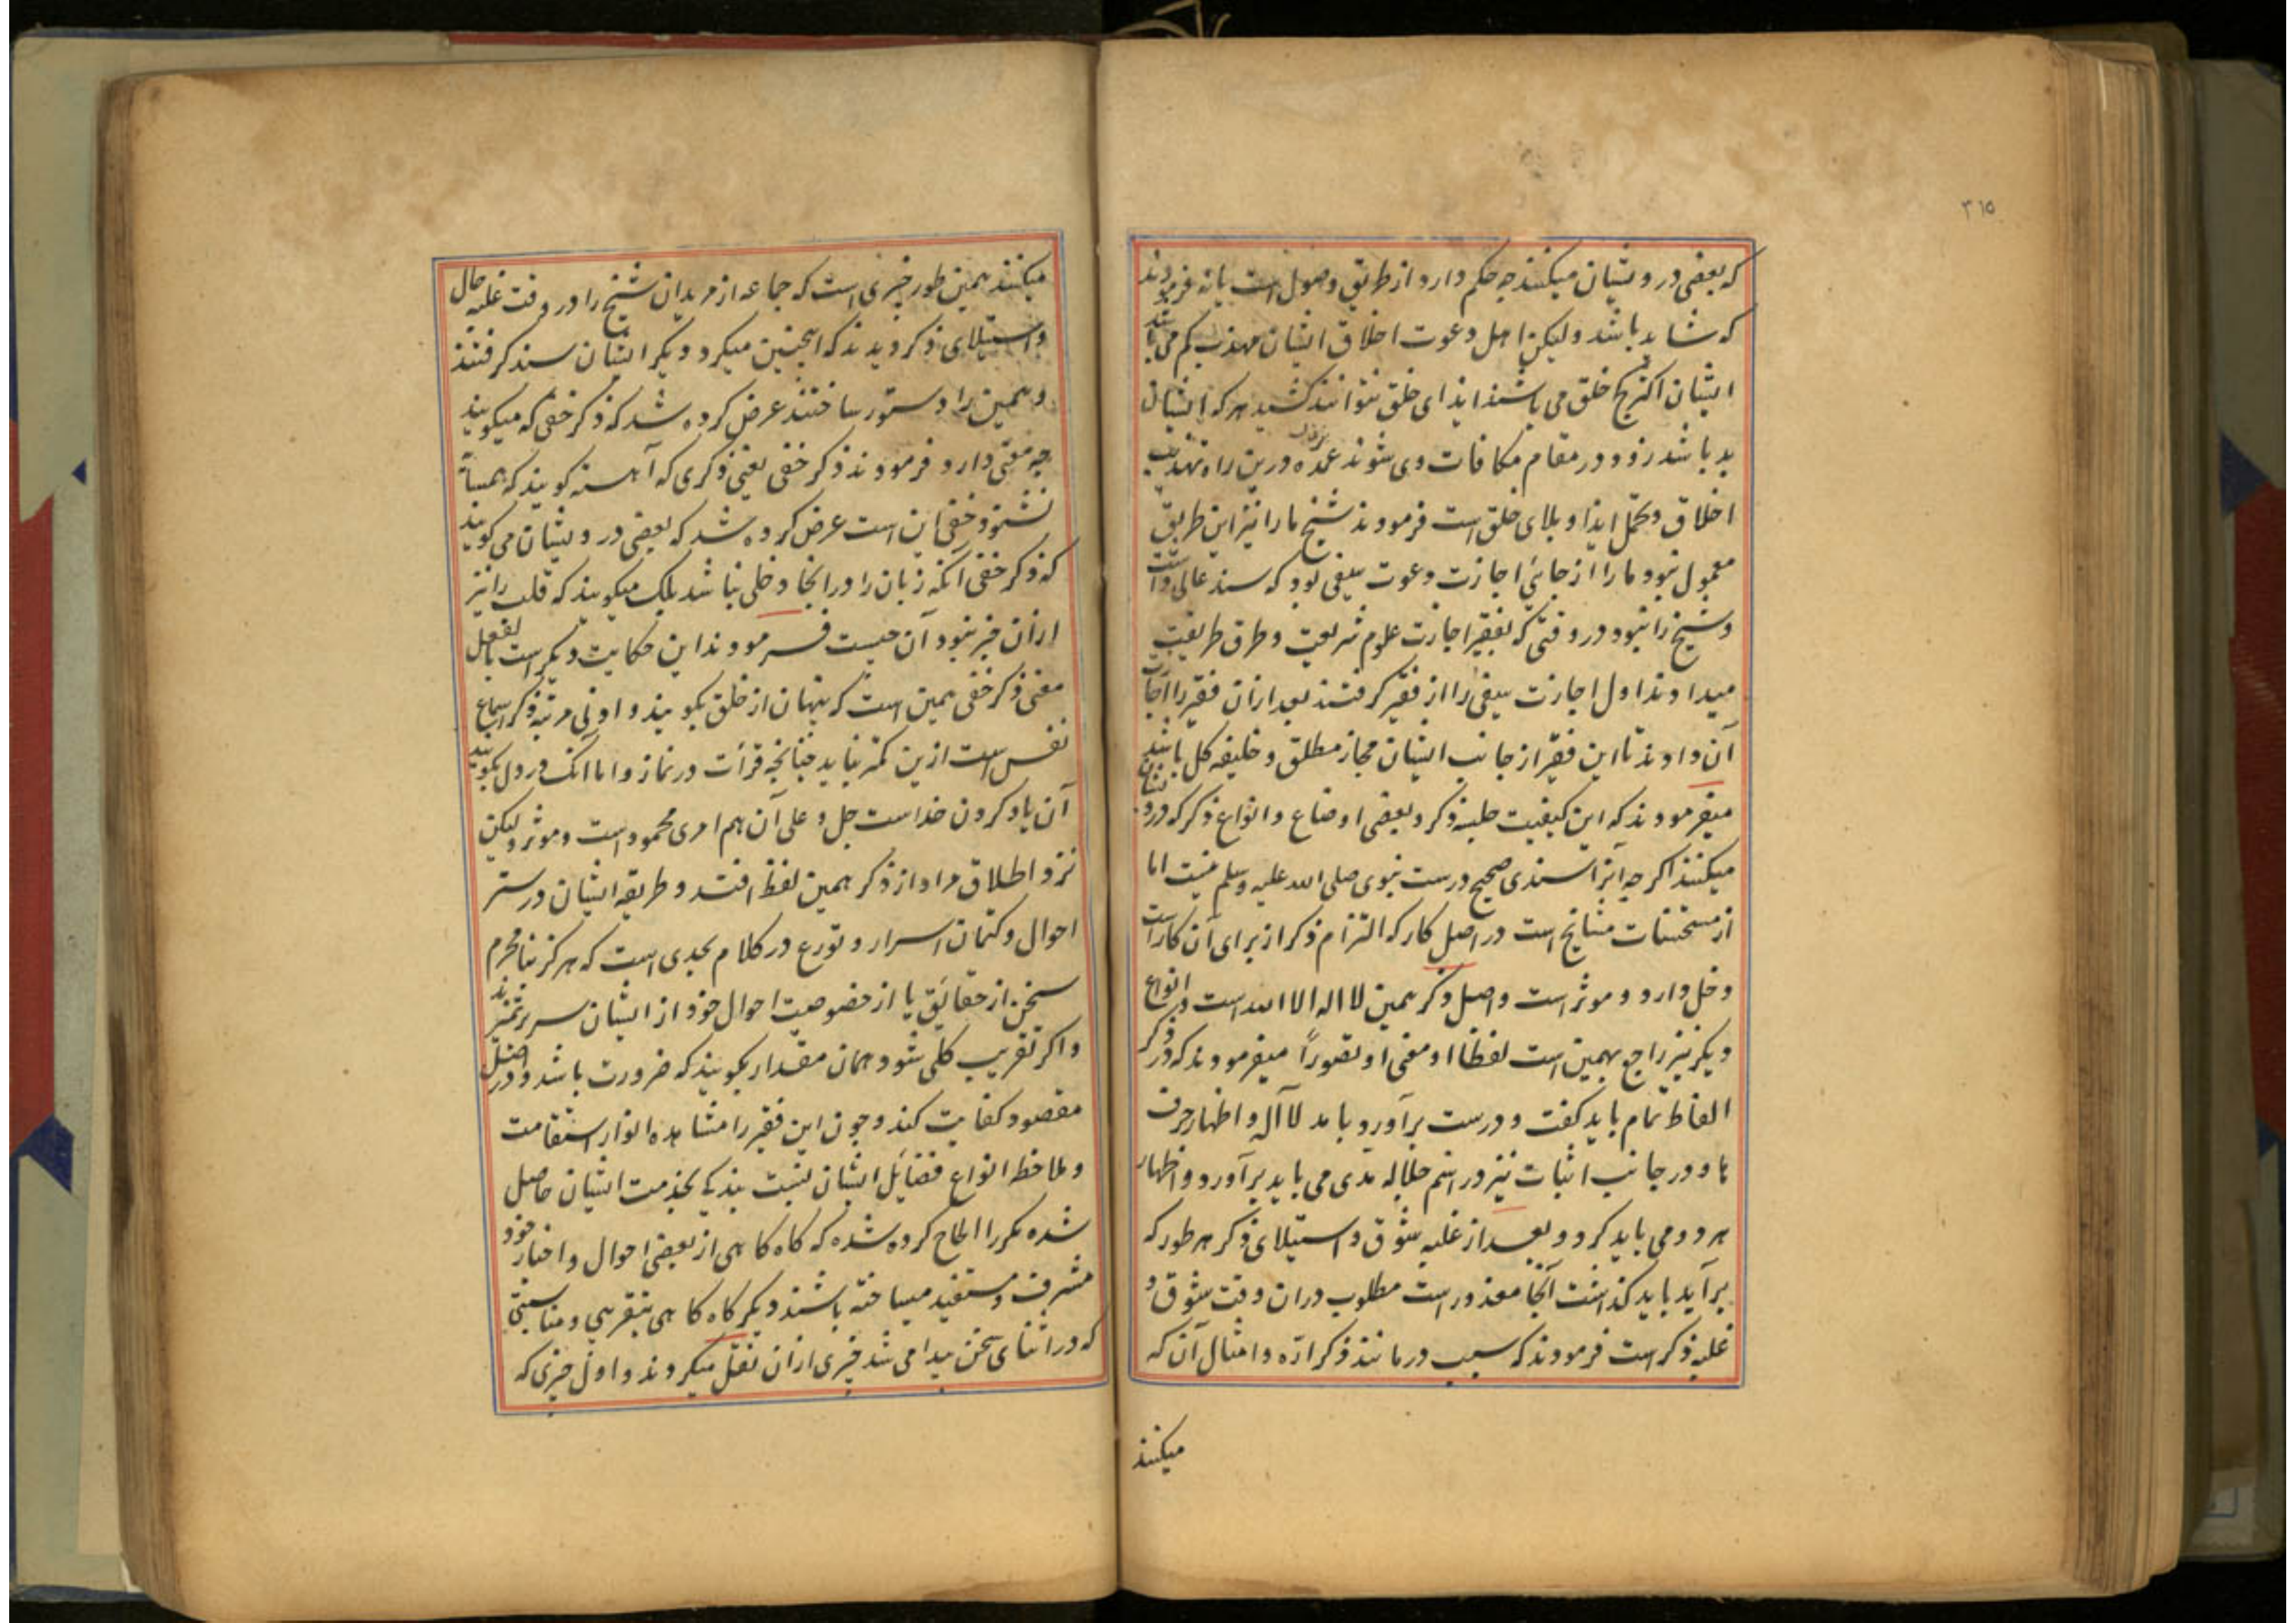 ۳۱۵
که بعضی درویشان میکنند چه حکم دارد از طریق وصول است یا نه فرمودند
که شاید باشد ولیکن اهل دعوت اخلاق ایشان مهذب کم می باشد
ایشان اکثر کج خلق می باشند ایذای خلق نتوانند کشید هر که با ایشان
بد باشد زود در مقام مکافات وی شوند عمده درین راه تهذیب
اخلاق و تحمل ایذا و بلای خلق است فرمودند شیخ ما را نیز این طریق
معمول نبود ما را از جائی اجازت دعوت سیفی بود که سند عالی داشت
و شیخ را نبود در وقتی که بفقیر اجازت علوم شریعت و طرق طریقت
میدادند اول اجازت سیفی را از فقیر گرفتند بعد ازان فقیر را اجازت
آن دادند تا این فقیر از جانب ایشان مجاز مطلق و خلیفه کل باشد
میفرمودند که این کیفیت جلسه ذکر و بعضی اوضاع و انواع ذکر که درو
میکنند اگرچه آنرا سندی صحیح درست نبوی صلی الله علیه وسلم نیست اما
از مستحسنات مشایخ است در اصل کار که التزام ذکر از برای آن کار است
دخل دارد و موثر است و اصل ذکر همین لا اله الا الله است و انواع
دیگر نیز راجع بهمین است لفظا او معنی او تصوراً میفرمودند که در ذکر
الفاظ تمام باید گفت و درست برآورد با مد لا آله و اظهار حرف
ها و در جانب اثبات نیز در اسم جلاله مدی می باید برآورد و اظهار
هر دو می باید کرد و بعد از غلبه شوق و استیلای ذکر هر طور که
برآید باید گذاشت آنجا معذور است مطلوب دران وقت شوق و
غلبه ذکر است فرمودند که سبب در مانند ذکر اره و امثال آن که
میکنند
میکنند همین طور خبری است که جماعه از مریدان شیخ را در وقت غلبه حال
و استیلای ذکر دیدند که اینچنین میکرد دیگر ایشان سند گرفتند
و همین را دستور ساختند عرض کرده شد که ذکر خفی که میگویند
چه معنی دارد فرمودند ذکر خفی یعنی ذکری که آهسته گویند که همسایه
نشنود خفی این است عرض کرده شد که بعضی درویشان می گویند
که ذکر خفی آنکه زبان را در آنجا دخلی نباشد بلکه میگویند که قلب را نیز
ازان خبر نبود آن چیست فرمودند این حکایت دیگر است بالفعل
معنی ذکر خفی همین است که پنهان از خلق بگویند و ادنی مرتبه ذکر اسماع
نفس است ازین کمتر نباید چنانچه قرأت در نماز و اما آنکه در دل بگویند
آن یاد کردن خداست جل و علی آن هم امری محمود است و موثر ولیکن
نزد اطلاق مراد از ذکر همین لفظ افتد و طریقه ایشان در ستر
احوال و کتمان اسرار و تورع در کلام بحدی است که هرگز بنامحرم
سخن از حقائق یا از خصوصیت احوال خود از ایشان سر بر نمیزند
و اگر تقریب کلی شود همان مقدار بگویند که ضرورت باشد و در اصل
مقصود کفایت کند و چون این فقیر را مشاهده انوار استقامت
و ملاحظ انواع فضائل ایشان نسبت بندگی بخدمت ایشان حاصل
شده مکررا الحاح کرده شده که گاه گاهی از بعضی احوال و اخبار خود
مشرف و مستفید میساخته باشند دیگر گاه گاهی بتقریبی و مناسبتی
که در اثنای سخن پیدا می شد خبری ازان نقل میکردند و اول چیزی که